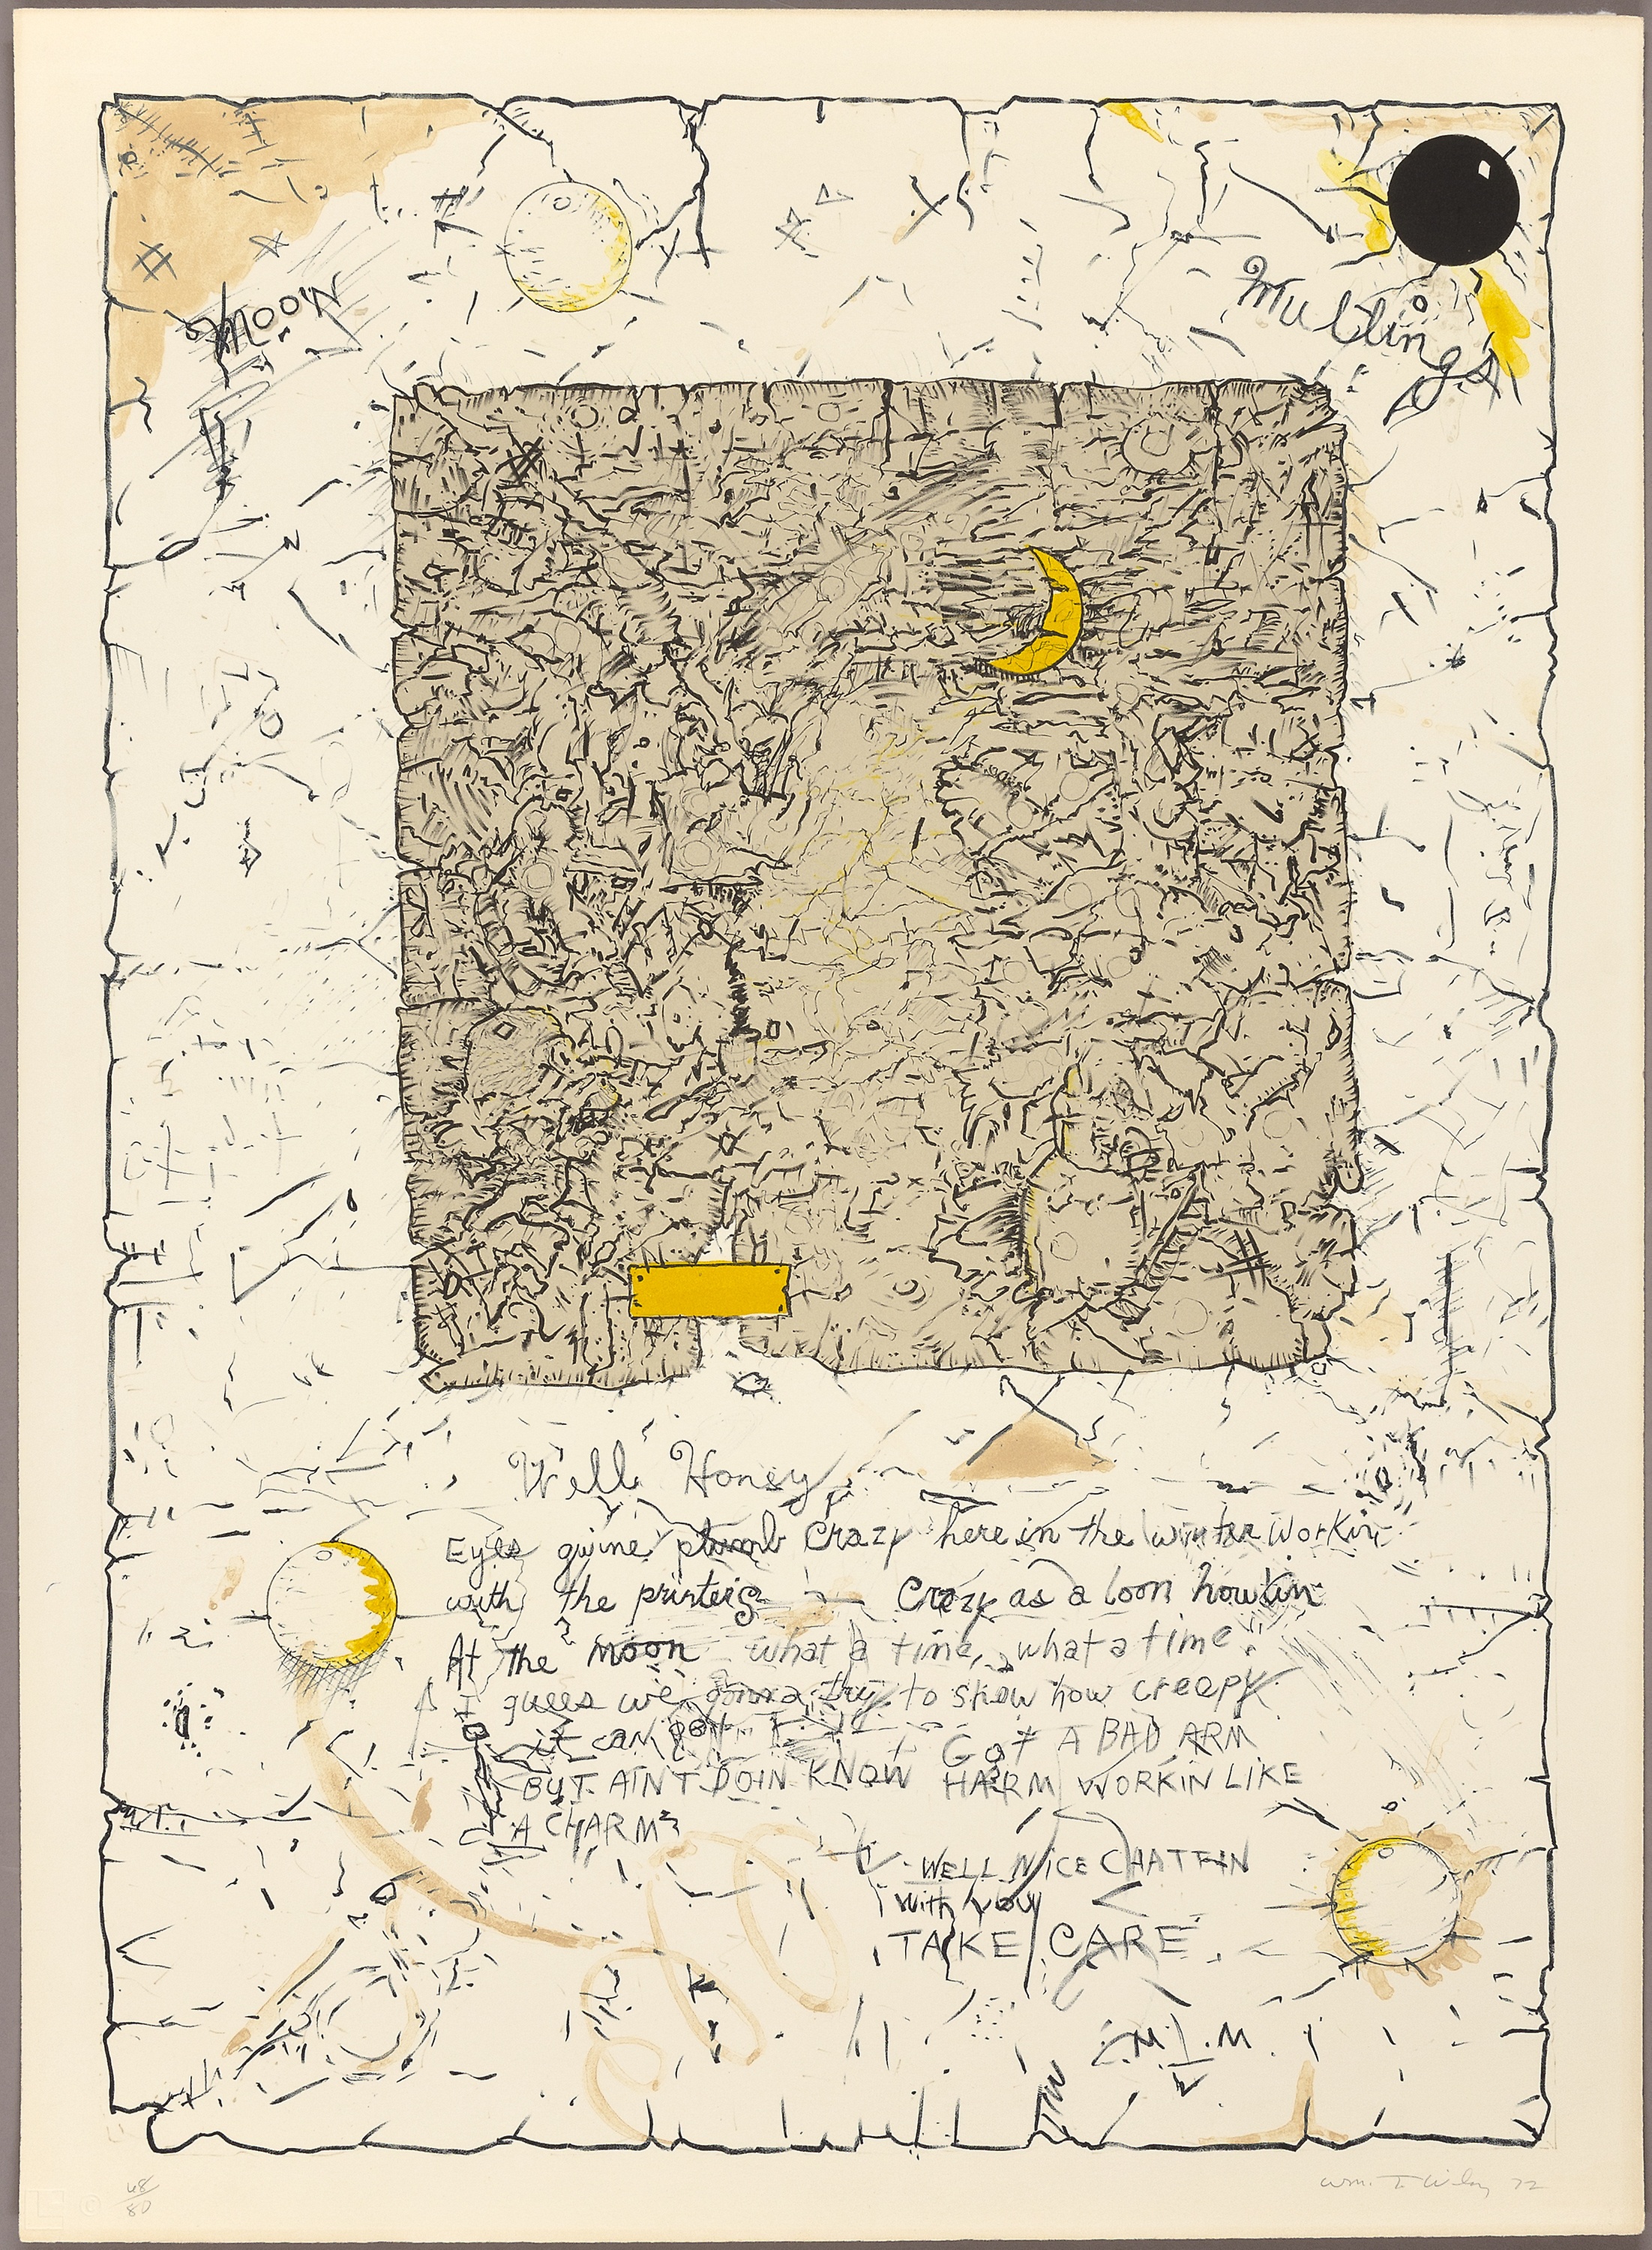 Moon
Mullings
Well Honey
Eyes gwine plumb crazy here in the winter workin
with the printers crazy as a loon howlin
At the moon what a time, what a time
I guess we gonna try to show how creepy
it can get Got A BAD ARM
BUT AIN'T DOIN KNOW HARM WORKIN LIKE
A CHARM
WELL NICE CHATTIN
with you
TAKE CARE
48/80
Wm. T Wiley 72